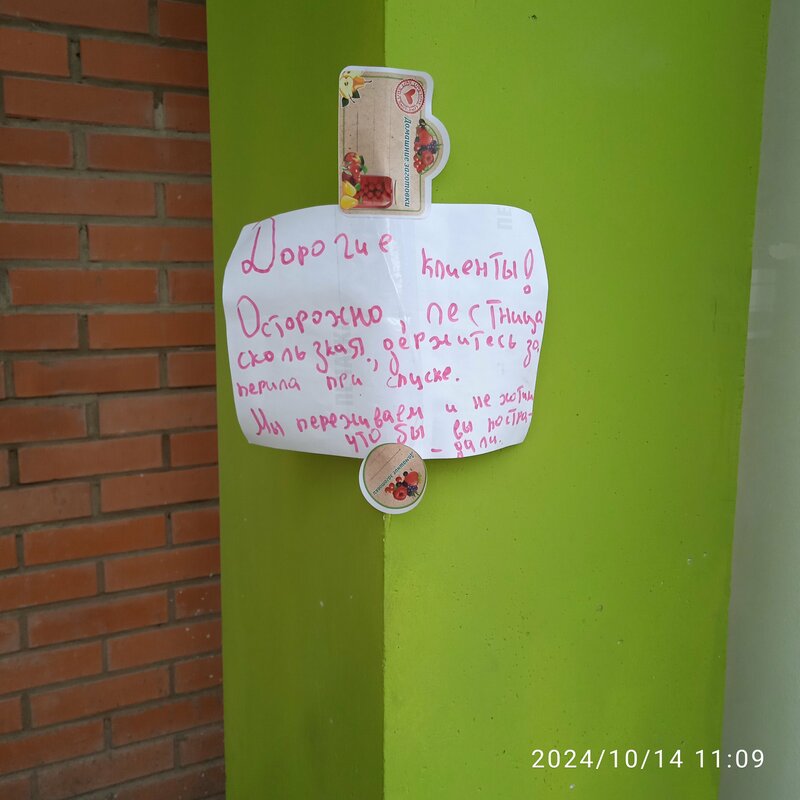 Домашние заготовки
Дорогие
клиенты!
Осторожно, лестница
скользкая, держитесь за
перила при спуске.
Мы переживаем и не хотим
что бы вы постра-
- дали.
Домашние заготовки
2024/10/14 11:09